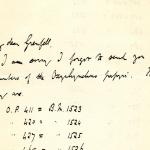 My dear Grenfell,
I am sorry I forgot to send you
numbers of the Oxyrhynchus papyri. Th
ey are.
O.P. 411 = B.M. 1523
" 420 = " 1524
" 427 = " 1525
= " 1526